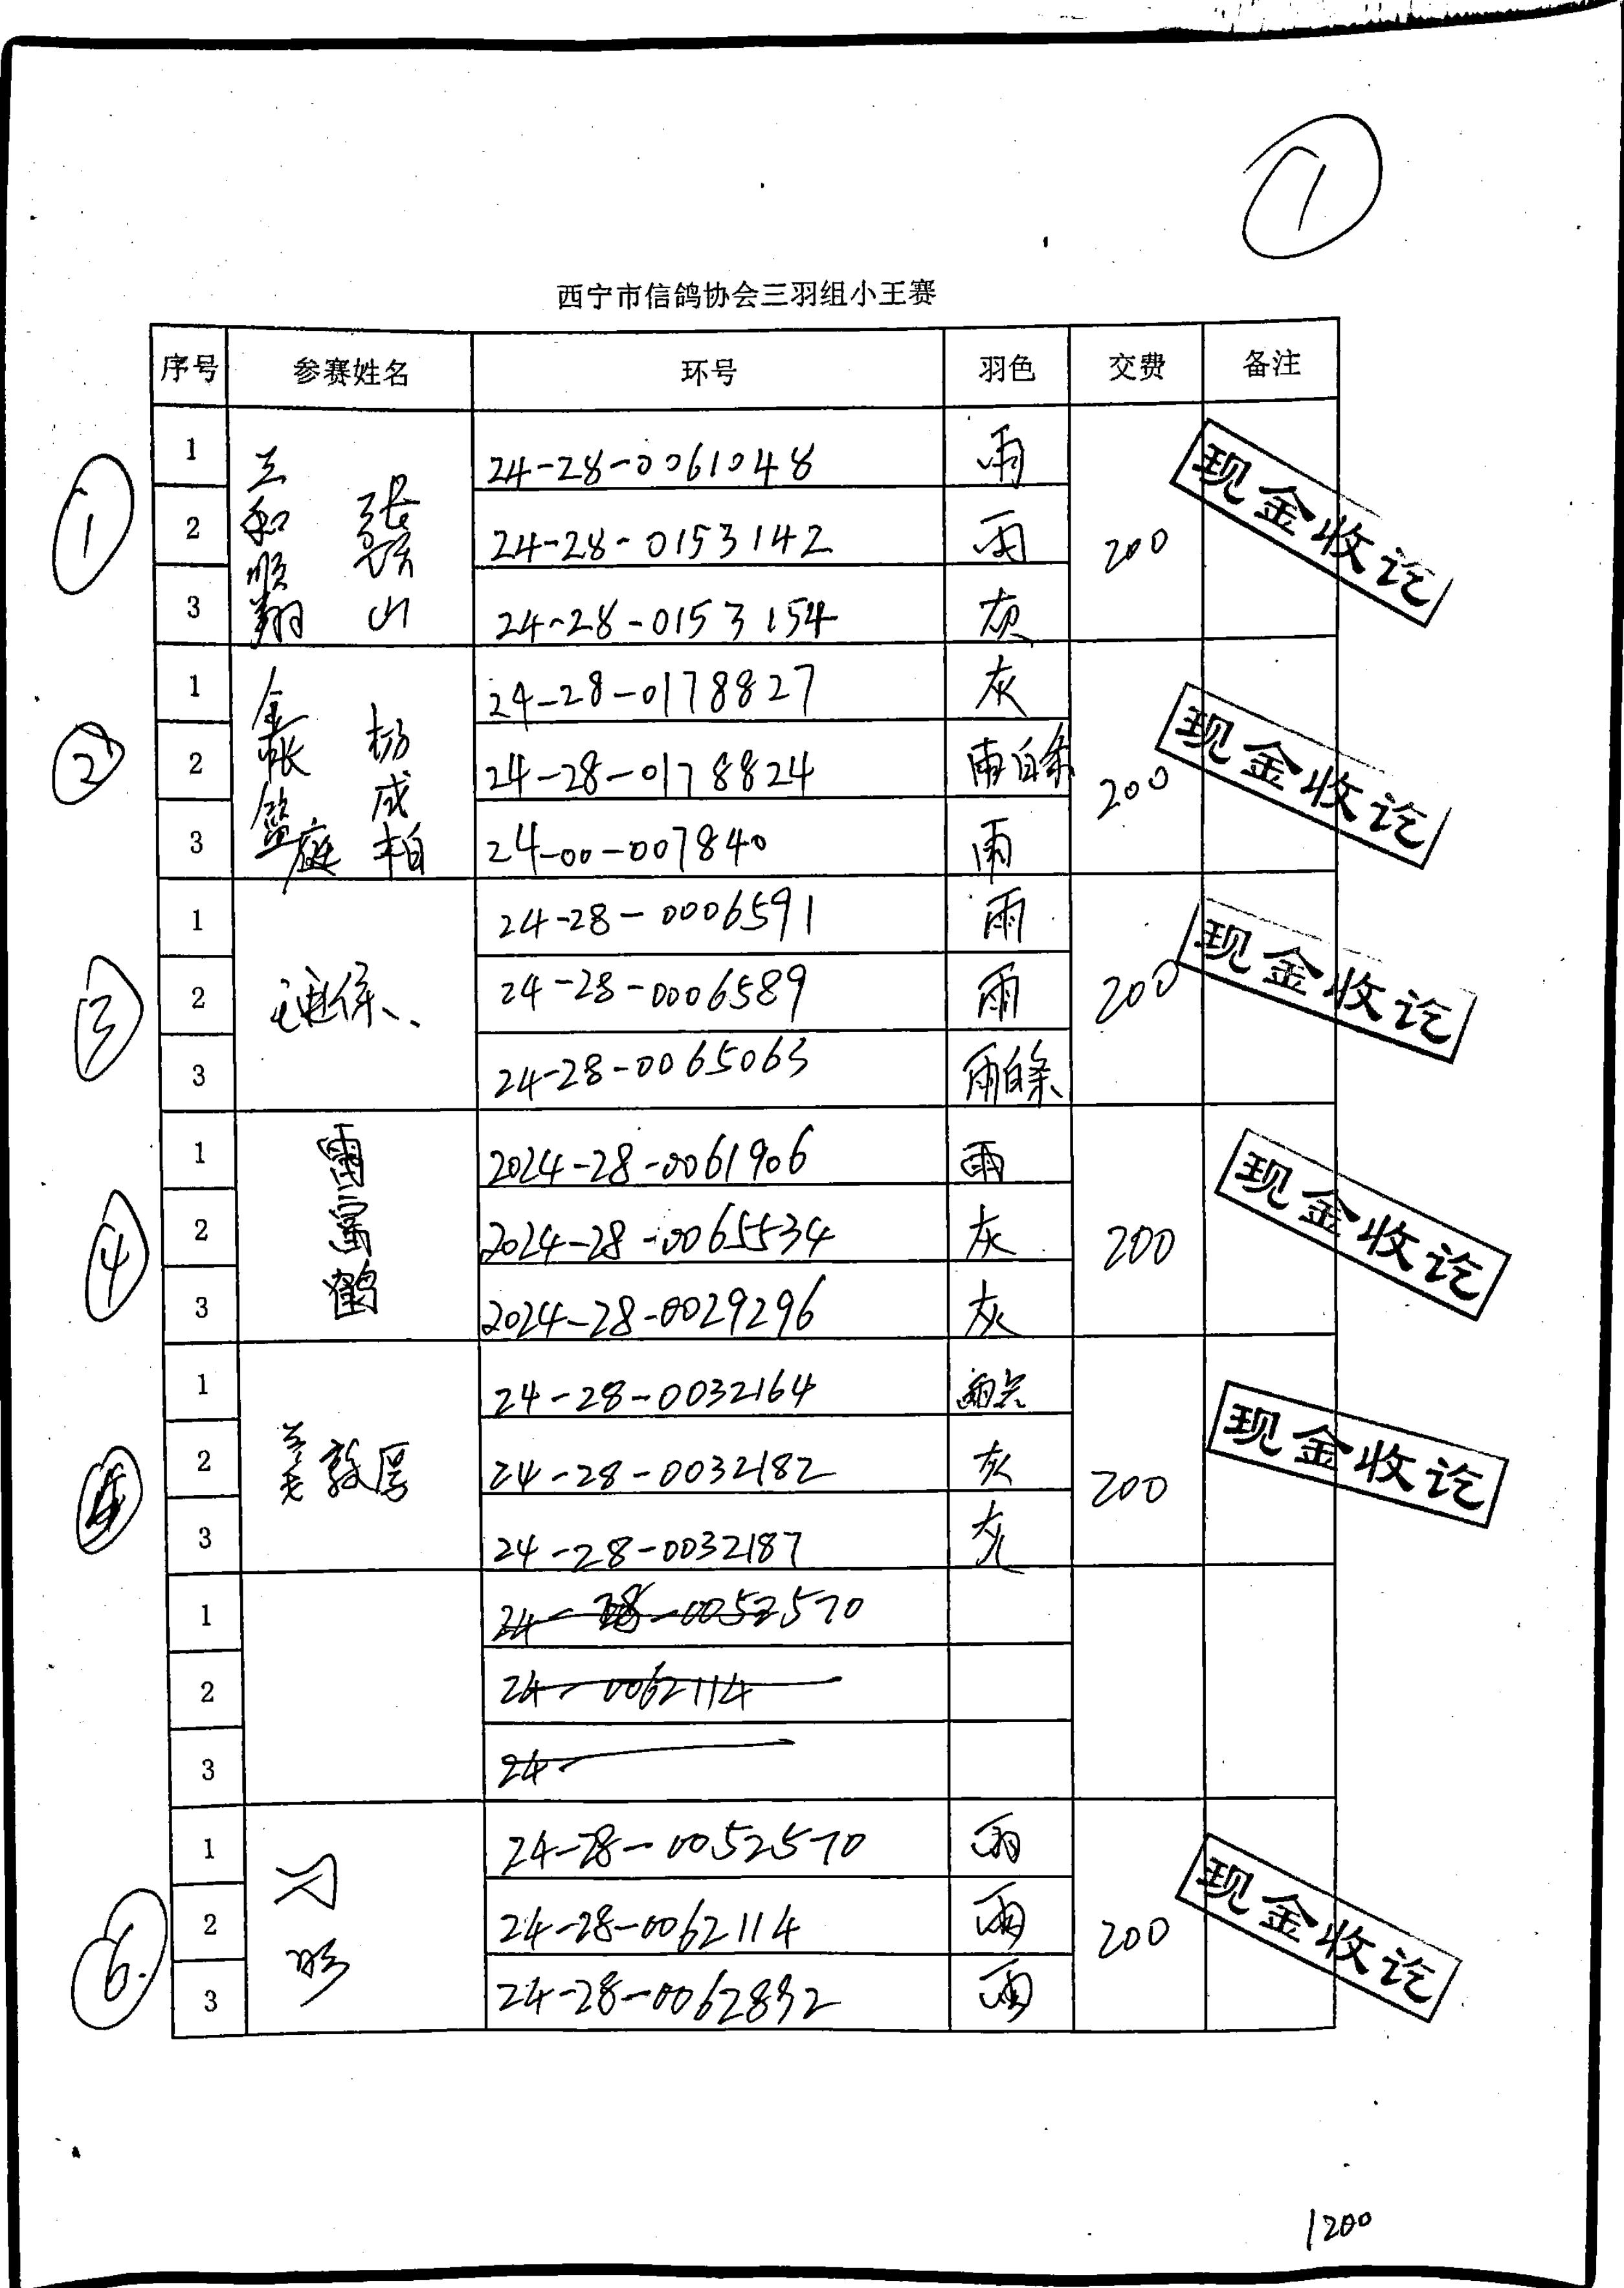 ①
西宁市信鸽协会三羽组小王赛
序号 参赛姓名 环号 羽色 交费 备注
① 三和顺翔 张 山
1 24-28-0061048 雨
2 24-28-0153142 雨 200 现金收讫
3 24-28-0153154 灰
② 金帐 庭 杨成柏
1 24-28-0178827 灰
2 24-28-0178824 雨白条 200 现金收讫
3 24-00-007840 雨
③
1 24-28-0006591 雨
2 24-28-0006589 雨 200 现金收讫
3 24-28-0065063 雨白条
④ 雷富鹤
1 2024-28-0061906 雨
2 2024-28-0065534 灰 200 现金收讫
3 2024-28-0029296 灰
敦厚
1 24-28-0032164
2 24-28-0032182 灰 200 现金收讫
3 24-28-0032187 灰
1 24-28-0052570
2 24-0062114
3 24-
⑥
1 24-28-0052570 雨
2 24-28-0062114 雨 200 现金收讫
3 24-28-0062892 雨
1200